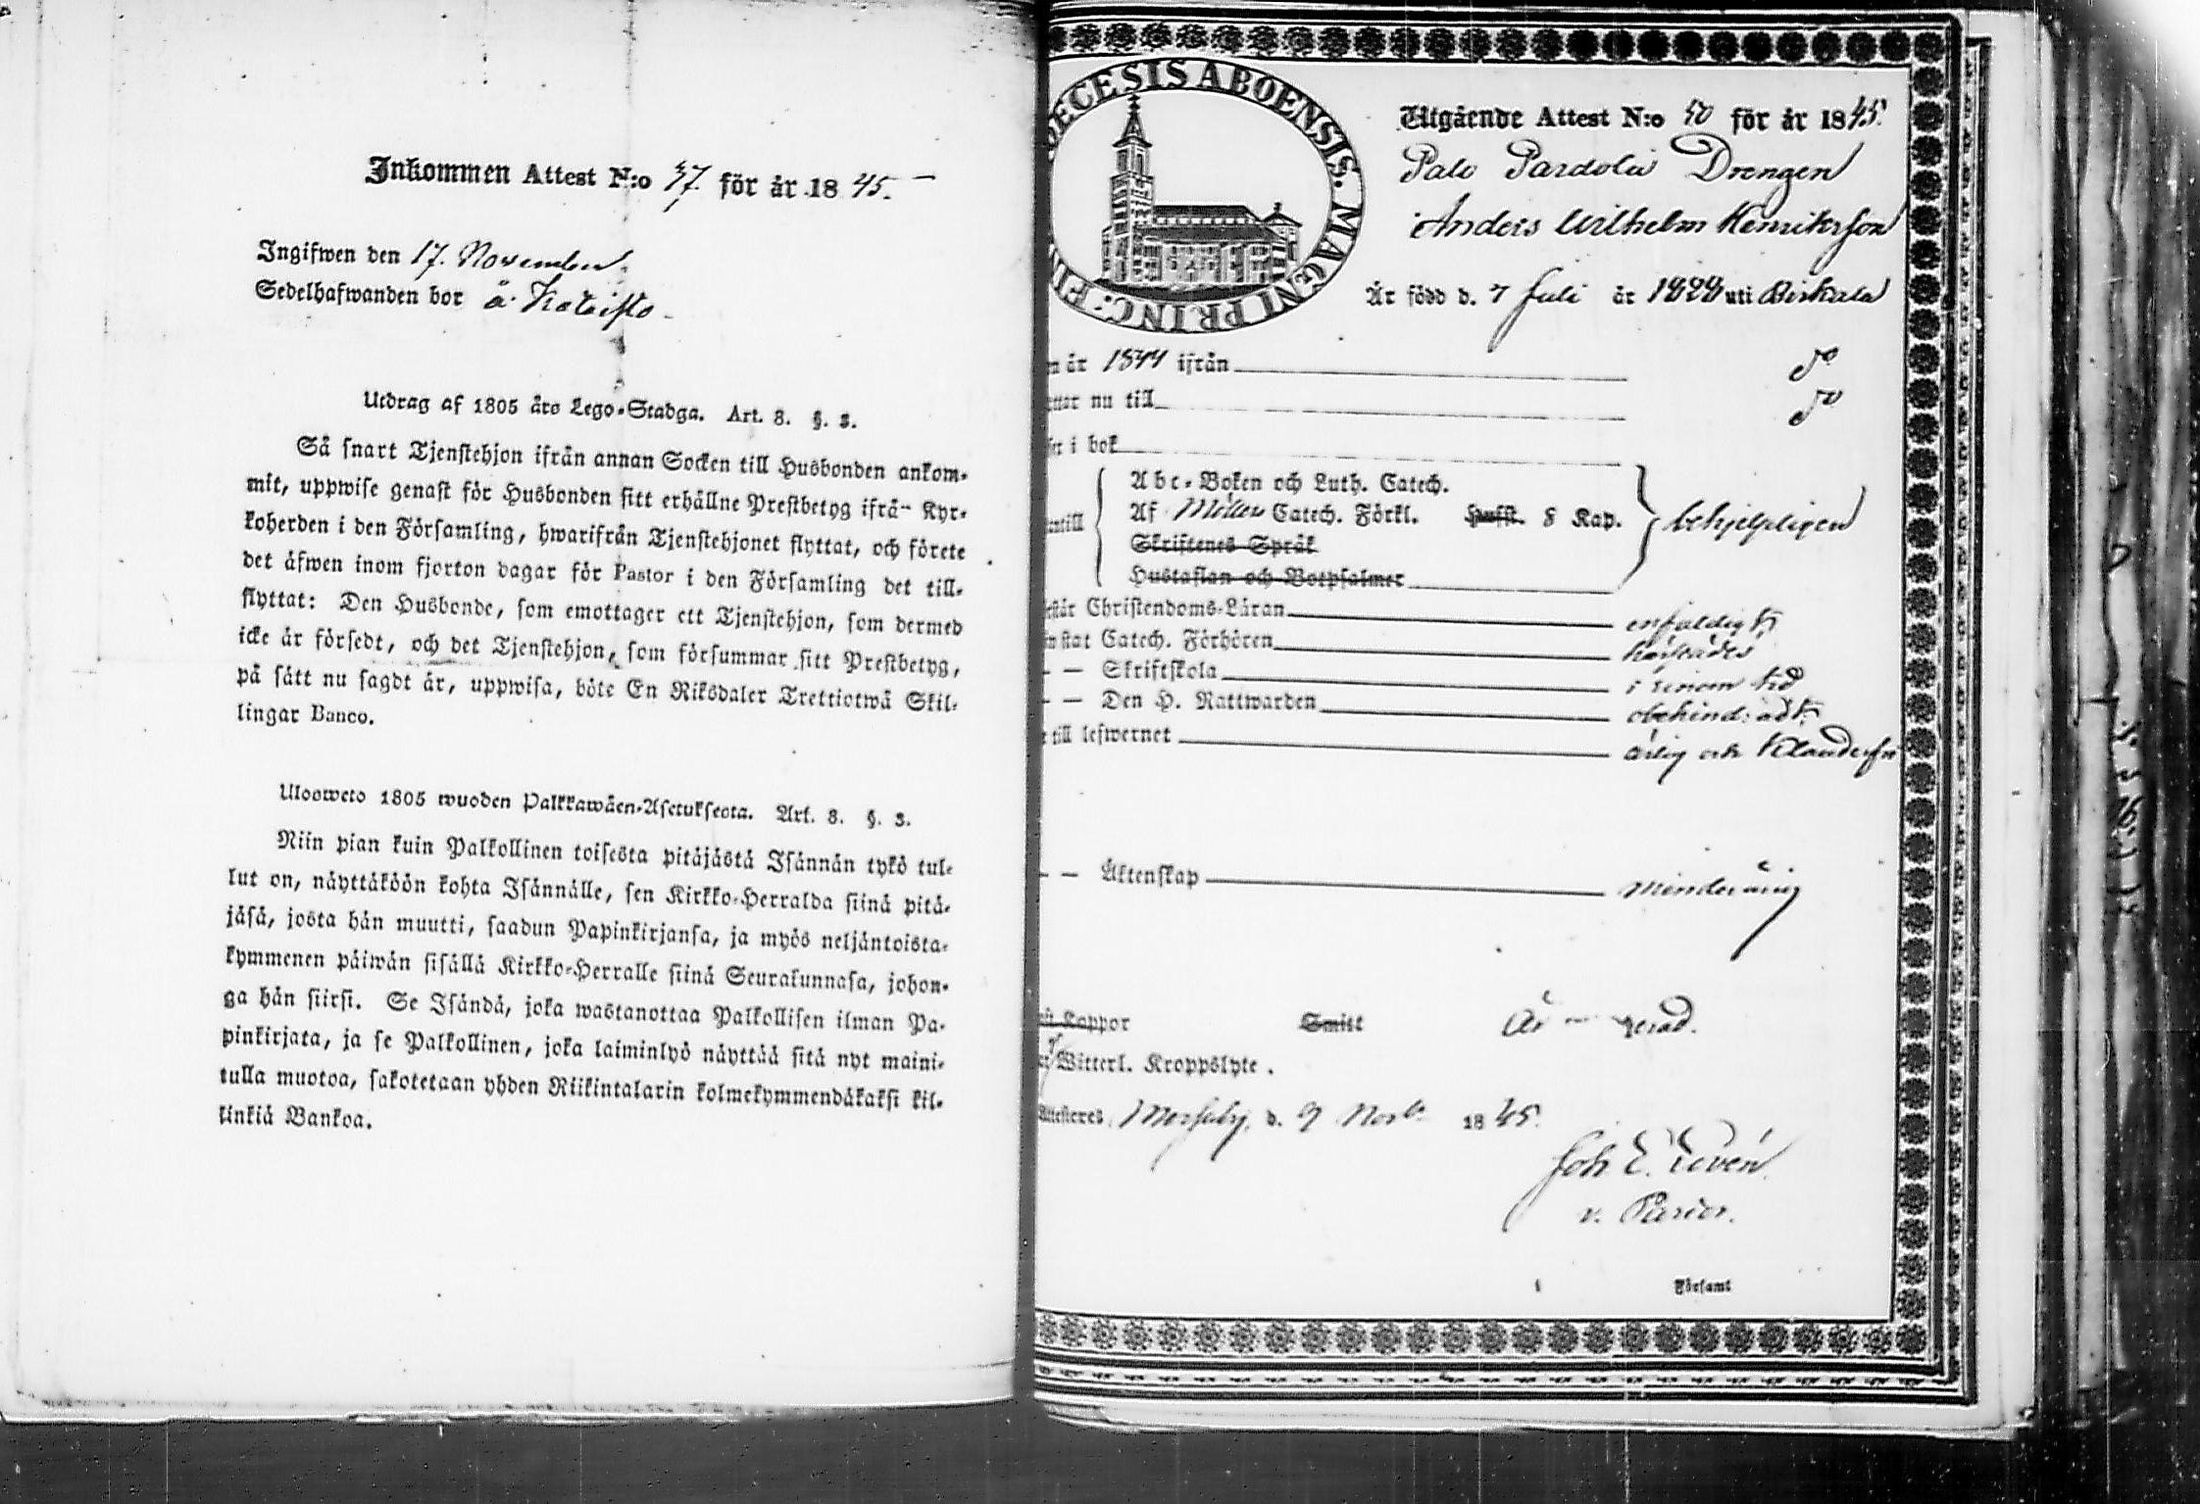 Inkommen Attest N:o 37. för år 1845.
Ingifwen den 17. November.
Sedelhafwanden bor å
Utdrag af 1805 års Lego-Stadga. Art. 8. §. 3.
Så snart Tjenstehjon ifrån annan Socken till Husbonden ankom-
mit, uppwise genast för Husbonden sitt erhållne Prestbetyg ifrå- Kyr-
koherden i den Församling, hwarifrån Tjenstehjonet flyttat, och förete
det äfwen inom fjorton dagar för Pastor i den Församling det till-
flyttat: Den Husbonde, som emottager ett Tjenstehjon, som dermed
icke är försedt, och det Tjenstehjon, som försummar sitt Prestbetyg,
på sätt nu sagdt är, uppwisa, böte En Riksdaler Trettiotwå Skil-
lingar Banco.
Ulosweto 1805 wuoden Palkkawäen-Asetuksesta. Art. 8. §. 3.
Niin pian kuin Palkollinen toisesta pitäjästä Isännän tykö tul-
lut on, näyttäköön kohta Isännälle, sen Kirkko-Herralda siinä pitä-
jäsä, josta hän muutti, saadun Papinkirjansa, ja myös neljäntoista-
kymmenen päiwän sisällä Kirkko-Herralle siinä Seurakunnasa, johon-
ga hän siirsi. Se Isändä, joka wastanottaa Palkollisen ilman Pa-
pinkirjata, ja se Palkollinen, joka laiminlyö näyttää sitä nyt maini-
tulla muotoa, sakotetaan yhden Riikintalarin kolmekymmendäkaksi kil-
linkiä Bankoa.
ECESIS ABOENSIS. MAGNI PRINC: FIN
Utgående Attest N:o 50 för år 1845.
Palo Pardola Drengen
Anders Wilhelm Henriksson
Är född d. 7 Juli år 1828 uti Birkala
n år 1844 ifrån do
ttar nu till do
ser i bok
Abc-Boken och Luth. Catech.
entill Af Möllers Catech. Förkl. Husst. 8 Kap. behjelpligen
Skriftenes Språk
Hustaflan och Botpsalmer
står Christendoms-Läran enfaldigt
wistat Catech. Förhören härstädes
- — Skriftskola i sinom tid
- — Den H. Nattwarden obehindradt
till lefwernet ärlig och klanderfri
- — Äktenskap minderårig
Kappor Smitt Är
Witterl. Kroppslyte.
Attesteres d. 9 Novb. 1845.
Joh E.
v. Pastor.
Församl